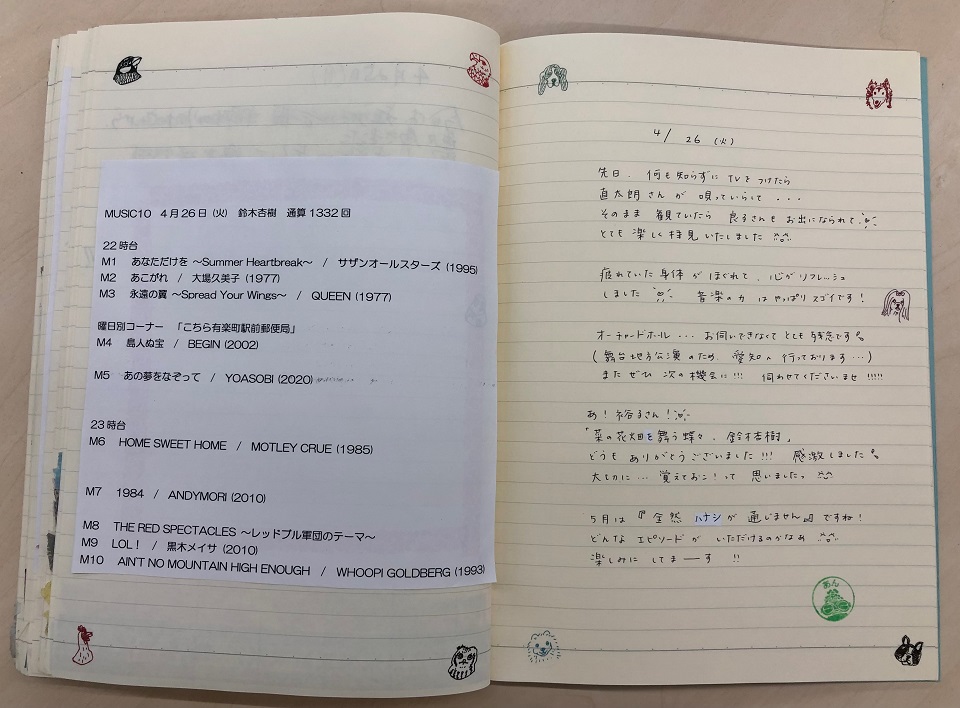 MUSIC10 4月26日(火) 鈴木杏樹 通算1332回
22時台
M1 あなただけを ～Summer Heartbreak～ / サザンオールスターズ (1995)
M2 あこがれ / 大場久美子 (1977)
M3 永遠の翼 ～Spread Your Wings～ / QUEEN (1977)
曜日別コーナー 「こちら有楽町駅前郵便局」
M4 島人ぬ宝 / BEGIN (2002)
M5 あの夢をなぞって / YOASOBI (2020)
23時台
M6 HOME SWEET HOME / MOTLEY CRUE (1985)
M7 1984 / ANDYMORI (2010)
M8 THE RED SPECTACLES ～レッドブル軍団のテーマ～
M9 LOL! / 黒木メイサ (2010)
M10 AIN'T NO MOUNTAIN HIGH ENOUGH / WHOOPI GOLDBERG (1993)
4/26 (火)
先日、何も知らずに TVをつけたら
直太朗さんが 唄っていらして・・・
そのまま 観ていたら 良子さんも お出になられて
とても 楽しく拝見いたしました
疲れていた身体が ほぐれて、心がリフレッシュ
しました 音楽の力 はやっぱり スゴイです!
オーチャードホール・・・ お伺いできなくて とても 残念です。
(舞台地方公演のため、愛知へ行っております…)
また ぜひ 次の機会に!!! 伺わせてくださいませ!!!!!
あ! 裕るさん!
「菜の花畑を舞う蝶々、鈴木杏樹」
どうも ありがとうございました!!! 感激しました。
大切に… 覚えておこ!って 思いましたっ
5月は『全然 ハナシが 通じません。』ですね!
どんな エピソードが いただけるのかなあ
楽しみに してまーす !!
あん